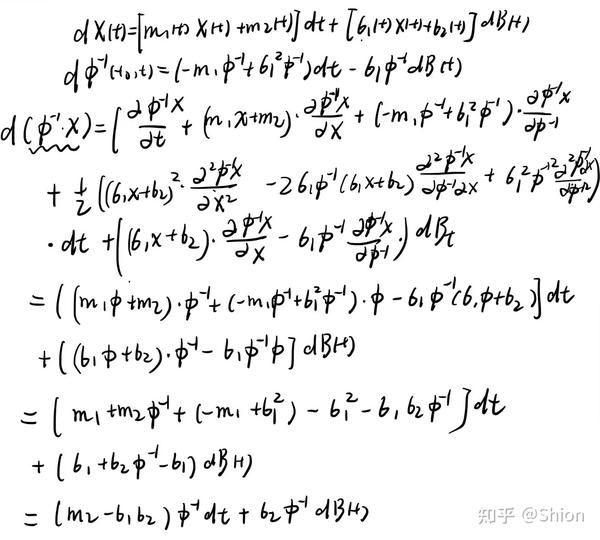 dX(t)=[m₁(t)X(t)+m₂(t)]dt+[б₁(t)X(t)+b₂(t)]dB(t)
dφ⁻¹(t₀,t)=(-m₁φ⁻¹+б₁²φ⁻¹)dt-б₁φ⁻¹dB(t)
d(φ⁻¹·X)=[∂φ⁻¹X/∂t+(m₁X+m₂)·∂φ⁻¹X/∂X+(-m₁φ⁻¹+б₁²φ⁻¹)·∂φ⁻¹X/∂φ⁻¹
+½((б₁X+b₂)²·∂²φ⁻¹X/∂X²-2б₁φ⁻¹(б₁X+b₂)∂²φ⁻¹X/∂φ⁻¹∂X+б₁²φ⁻¹²∂²φ⁻¹X/∂φ⁻¹²)
·dt+((б₁X+b₂)·∂φ⁻¹X/∂X-б₁φ⁻¹∂φ⁻¹X/∂φ⁻¹)dBt
=[(m₁φ+m₂)·φ⁻¹+(-m₁φ⁻¹+б₁²φ⁻¹)·φ-б₁φ⁻¹(б₁φ+b₂)]dt
+[(б₁φ+b₂)·φ⁻¹-б₁φ⁻¹φ]dB(t)
=[m₁+m₂φ⁻¹+(-m₁+б₁²)-б₁²-б₁b₂φ⁻¹]dt
+(б₁+b₂φ⁻¹-б₁)dB(t)
=(m₂-б₁b₂)φ⁻¹dt+b₂φ⁻¹dB(t)
知乎 @Shion